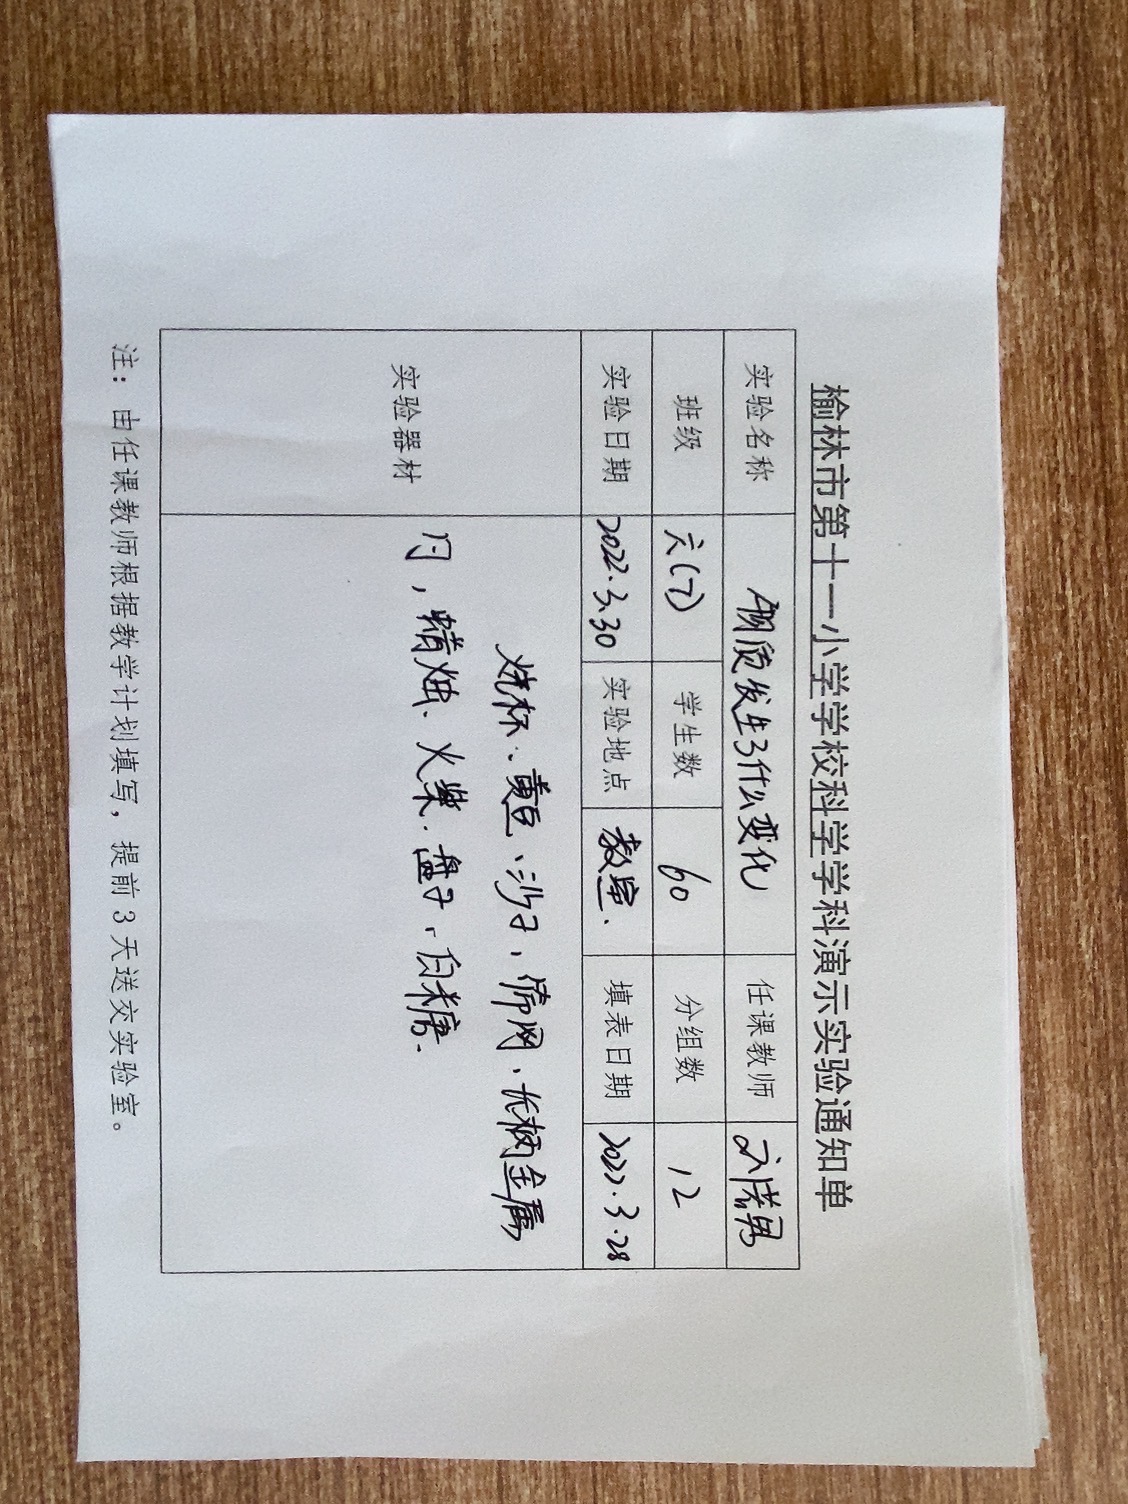 榆林市第十一小学学校科学学科演示实验通知单
实验名称 物质发生了什么变化 任课教师 刘诺男
班级 六(7) 学生数 60 分组数 12
实验日期 2022.3.30 实验地点 教室. 填表日期 2022.3.28
实验器材 烧杯、黄豆、沙子、筛网、长柄金属
勺，蜡烛、火柴、盘子、白糖.
注：由任课教师根据教学计划填写，提前3天送交实验室。